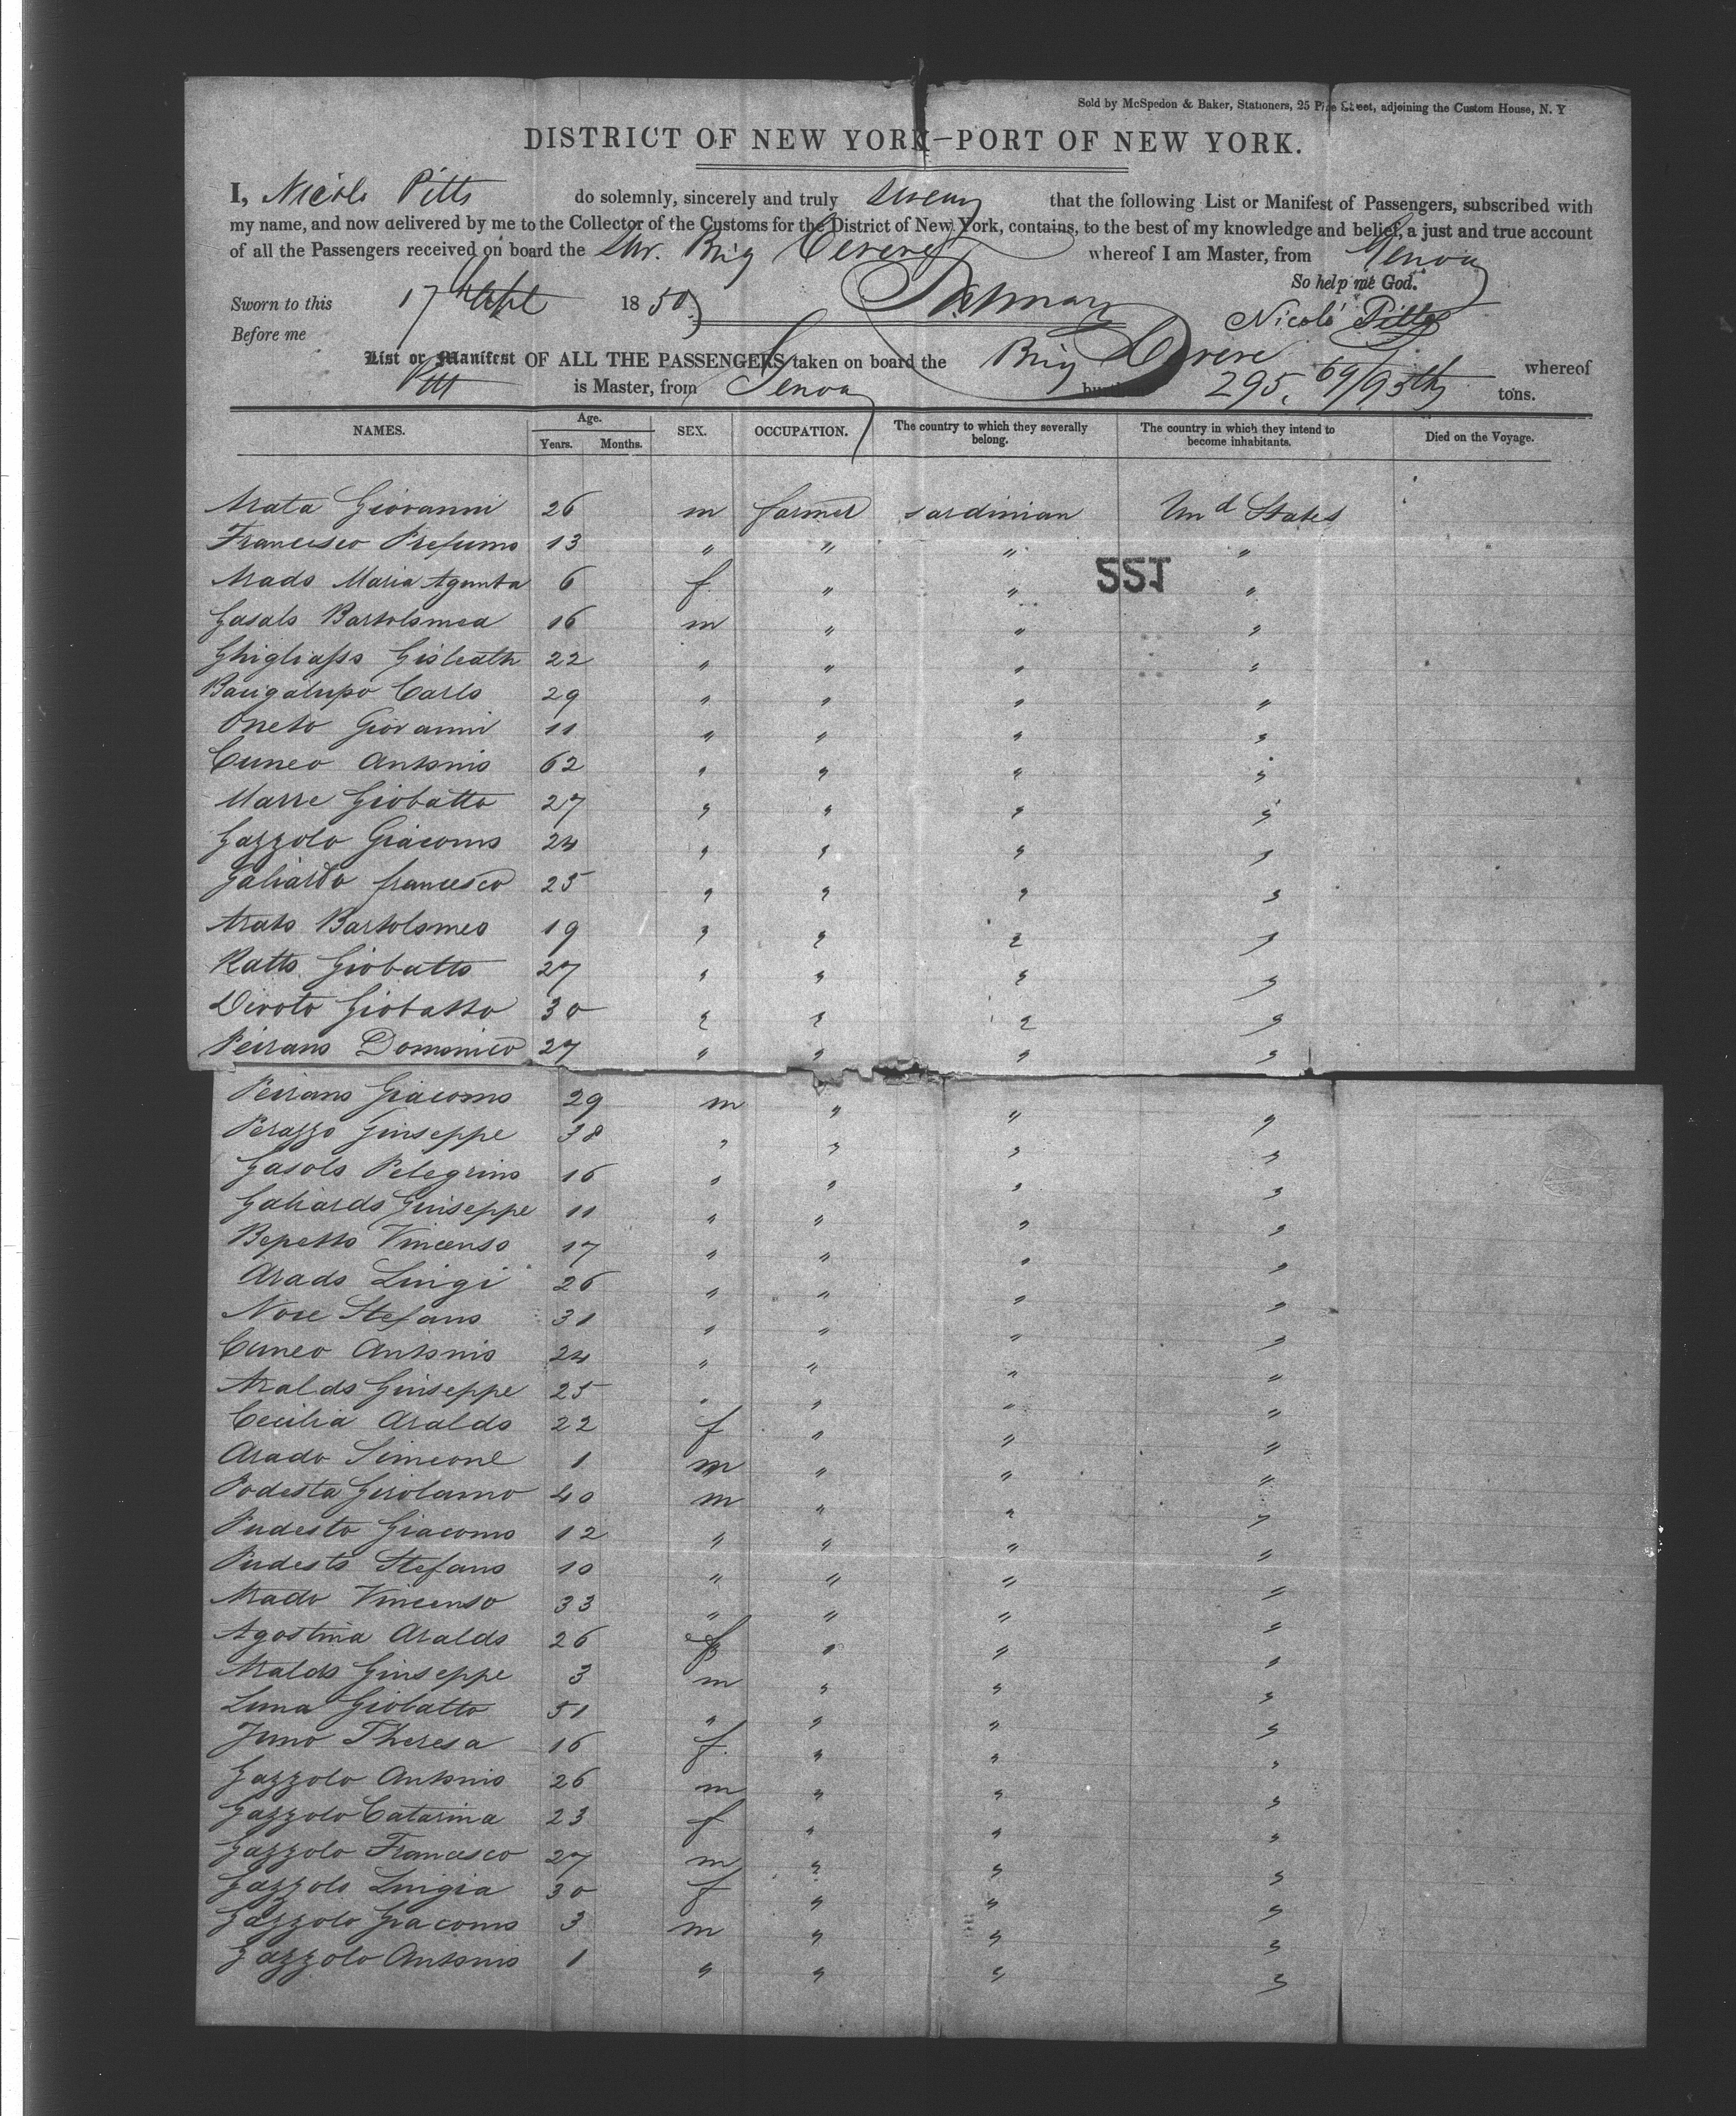 Sold by McSpedon & Baker, Stationers, 25 Pine Street, adjoining the Custom House, N. Y
DISTRICT OF NEW YORK—PORT OF NEW YORK.
I, Nicolo Pitto do solemnly, sincerely and truly swear that the following List or Manifest of Passengers, subscribed with
my name, and now delivered by me to the Collector of the Customs for the District of New York, contains, to the best of my knowledge and belief, a just and true account
of all the Passengers received on board the Sar. Brig Cerere whereof I am Master, from Genoa
So help me God.
Sworn to this 17 Sept 1850
Nicolò Pitto
Before me
List or Manifest OF ALL THE PASSENGERS taken on board the Brig Cerere whereof
Pitt is Master, from Genoa 295, 69/95th tons.
NAMES. Age. Years. Months. SEX. OCCUPATION. The country to which they severally belong. The country in which they intend to become inhabitants. Died on the Voyage.
Arata Giovanni 26 m farmer sardinian Und States
Francesco Prefumo 13 " " " "
SST
Arado Maria Agunta 6 f " " "
Gasalo Bartolomea 16 m " " "
Ghigliasso 22 " " " "
Bacigalupo Carlo 29 " " " "
Oneto Giovanni 11 " " " "
Cuneo Antonio 62 " " " "
Marre Giobatto 27 " " " "
Gazzolo Giacomo 24 " " " "
Galiardo francesco 25 " " " "
Arato Bartolomeo 19 " " " "
Ratto Giobatto 27 " " " "
Divoto Giobatto 30 " " " "
Peirano Dominico 27 " " " "
Peirano Giacomo 29 m " " "
Perazzo Giuseppe 38 " " " "
Gasolo Pelegrino 16 " " " "
Galiardo Giuseppe 11 " " " "
Bepetto Vincenso 17 " " " "
Arado Luigi 26 " " " "
Noce Stefano 31 " " " "
Cuneo Antonio 24 " " " "
Araldo Giuseppe 25 " " " "
Cecilia Araldo 22 f " " "
Arado Simeone 1 m " " "
Podesta Girolamo 40 m " " "
Pudesto Giacomo 12 " " " "
Pudesto Stefano 10 " " " "
Arado Vincenso 33 " " " "
Agostina Araldo 26 f " " "
Araldo Giuseppe 3 m " " "
Luna Giobatto 51 " " " "
Juno Theresa 16 f " " "
Gazzolo Antonio 26 m " " "
Gazzolo Catarina 23 f " " "
Gazzolo Francesco 27 m " " "
Gazzolo Luigia 30 f " " "
Gazzolo Giacomo 3 m " " "
Gazzolo Antonio 1 " " " "